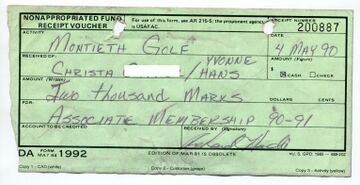 NONAPPROPRIATED FUND
RECEIPT VOUCHER
For use of this form, see AR 215-5; the proponent agency is USAFAC.
RECEIPT NUMBER
200887
ACTIVITY
MONTIETH GOLF
DATE
4 MAY 90
RECEIVED OF:
CHRISTA / YVONNE
HANS
AMOUNT (Figure)
$
CASH CHECK
AMOUNT (Written)
Two thousand MARKS
FOR:
ASSOCIATE MEMBERSHIP 90-91
ACCOUNT TO BE CREDITED
RECEIVED BY (Signature)
DA FORM MAY 84 1992
EDITION OF MAR 81 IS OBSOLETE
Copy 1 - CAO (white)
Copy 2 - Customer (green)
Copy 3 - Activity (yellow)